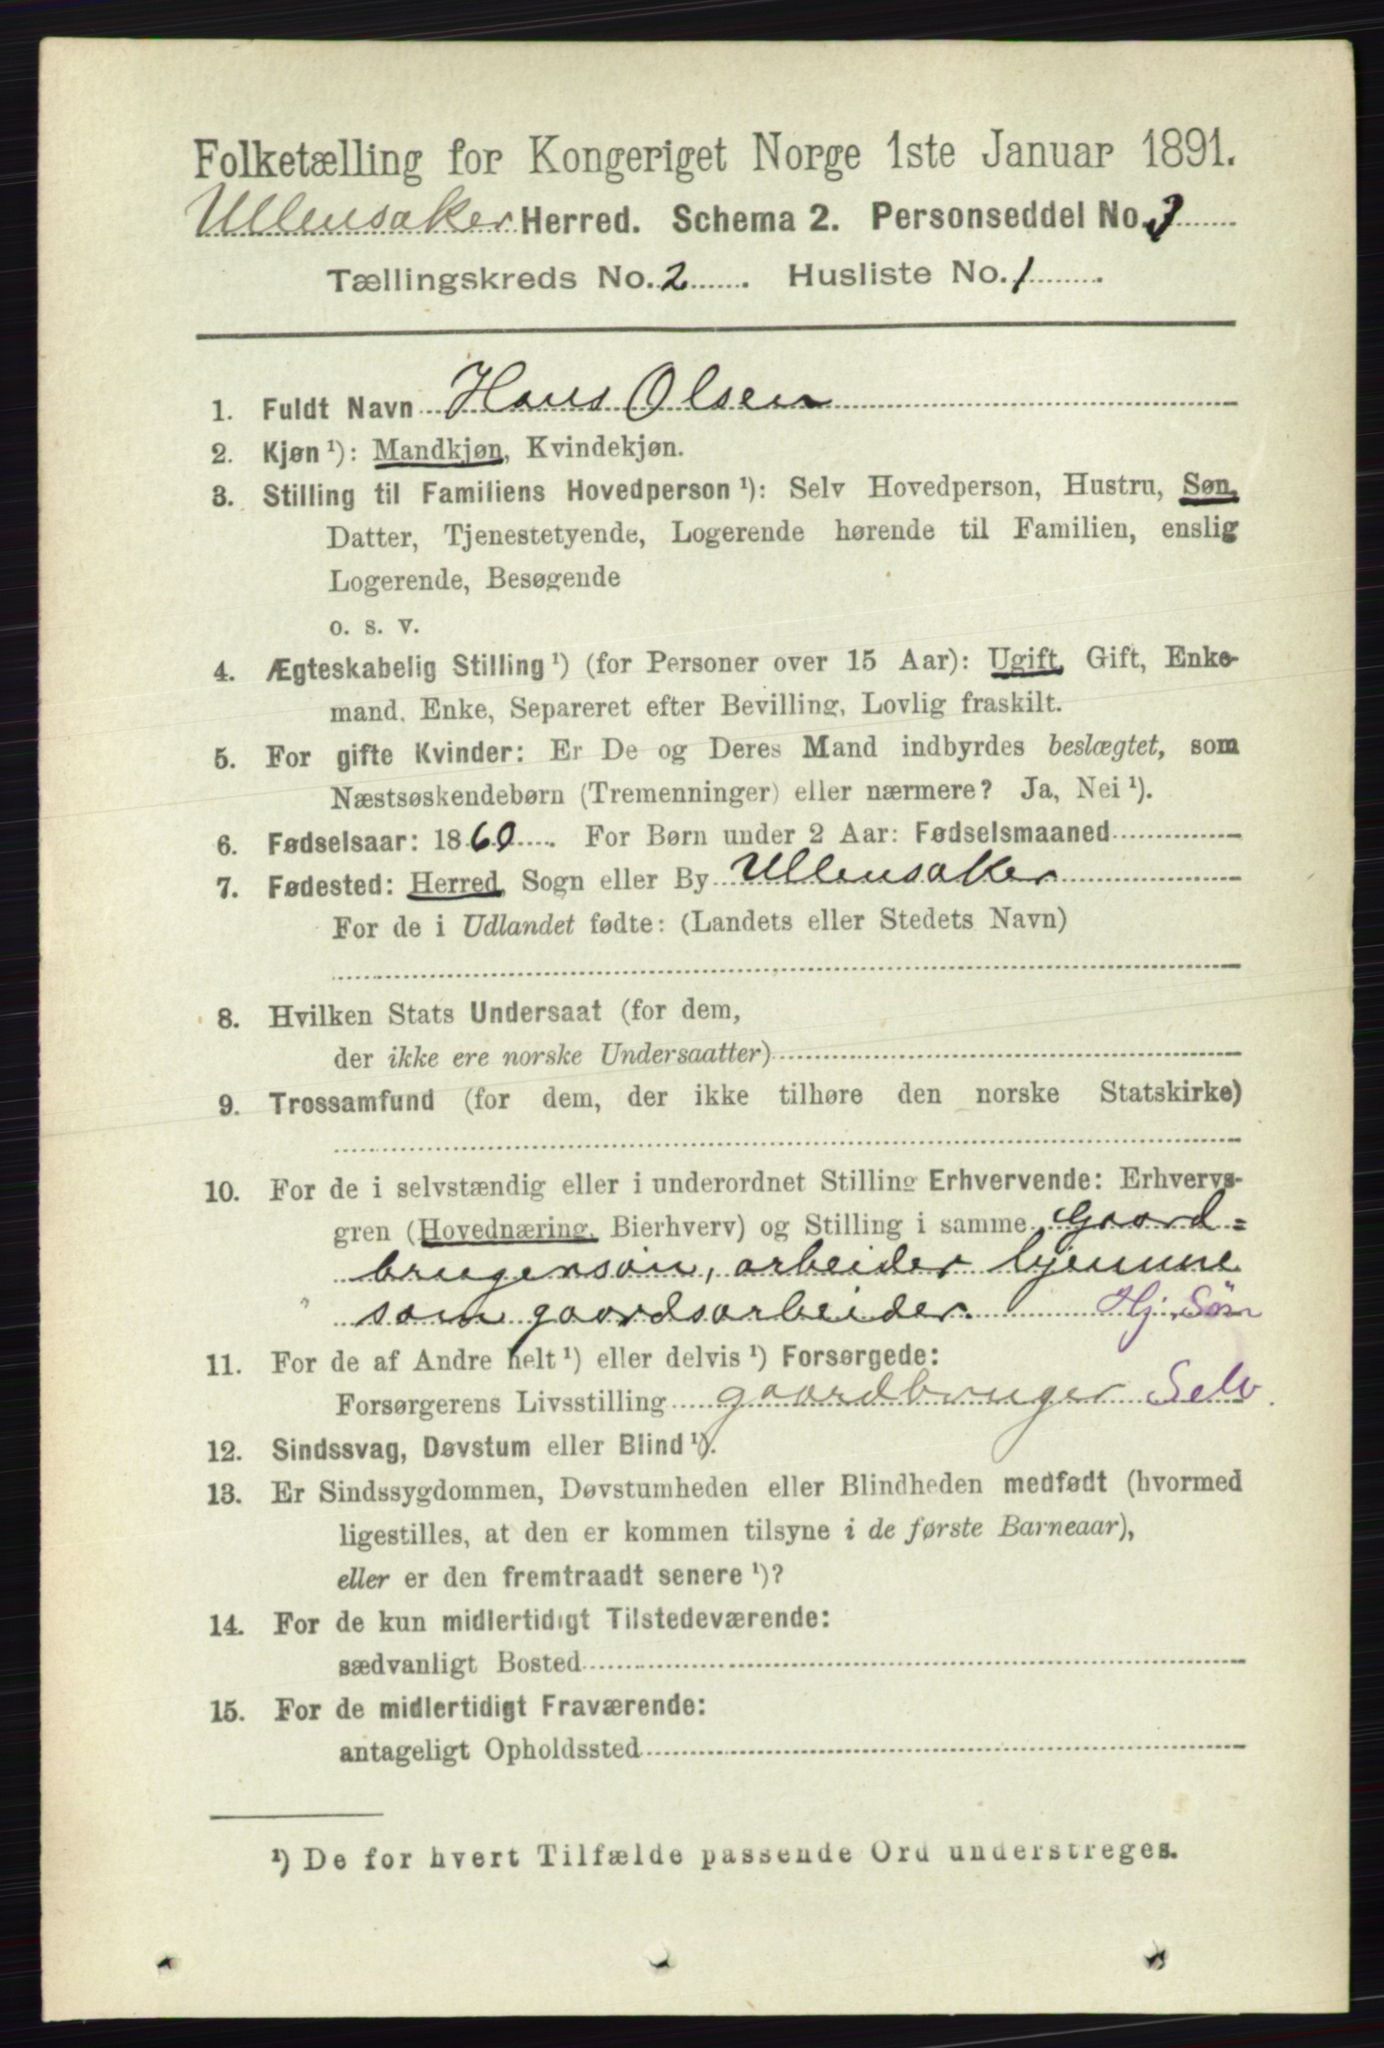 Folketælling for Kongeriget Norge 1ste Januar 1891.
Ullensaker Herred. Schema 2. Personseddel No. 3
Tællingskreds No. 2. Husliste No. 1.
1. Fuldt Navn Hans Olsen
2. Kjøn ¹): Mandkjøn, Kvindekjøn.
3. Stilling til Familiens Hovedperson ¹): Selv Hovedperson, Hustru, Søn,
Datter, Tjenestetyende, Logerende hørende til Familien, enslig
Logerende, Besøgende
o. s. v.
4. Ægteskabelig Stilling ¹) (for Personer over 15 Aar): Ugift, Gift, Enke-
mand, Enke, Separeret efter Bevilling, Lovlig fraskilt.
5. For gifte Kvinder: Er De og Deres Mand indbyrdes beslægtet, som
Næstsøskendebørn (Tremenninger) eller nærmere? Ja, Nei ¹).
6. Fødselsaar: 1860. For Børn under 2 Aar: Fødselsmaaned
7. Fødested: Herred, Sogn eller By Ullensaker
For de i Udlandet fødte: (Landets eller Stedets Navn)
8. Hvilken Stats Undersaat (for dem,
der ikke ere norske Undersaatter)
9. Trossamfund (for dem, der ikke tilhøre den norske Statskirke)
10. For de i selvstændig eller i underordnet Stilling Erhvervende: Erhvervs-
gren (Hovednæring, Bierhverv) og Stilling i samme Gaard=
brugersøn, arbeider hjemme
som gaardsarbeider. Hj. Søn
11. For de af Andre helt ¹) eller delvis ¹) Forsørgede:
Forsørgerens Livsstilling gaardbruger Selv.
12. Sindssvag, Døvstum eller Blind ¹).
13. Er Sindssygdommen, Døvstumheden eller Blindheden medfødt (hvormed
ligestilles, at den er kommen tilsyne i de første Barneaar),
eller er den fremtraadt senere ¹)?
14. For de kun midlertidigt Tilstedeværende:
sædvanligt Bosted
15. For de midlertidigt Fraværende:
antageligt Opholdssted
¹) De for hvert Tilfælde passende Ord understreges.